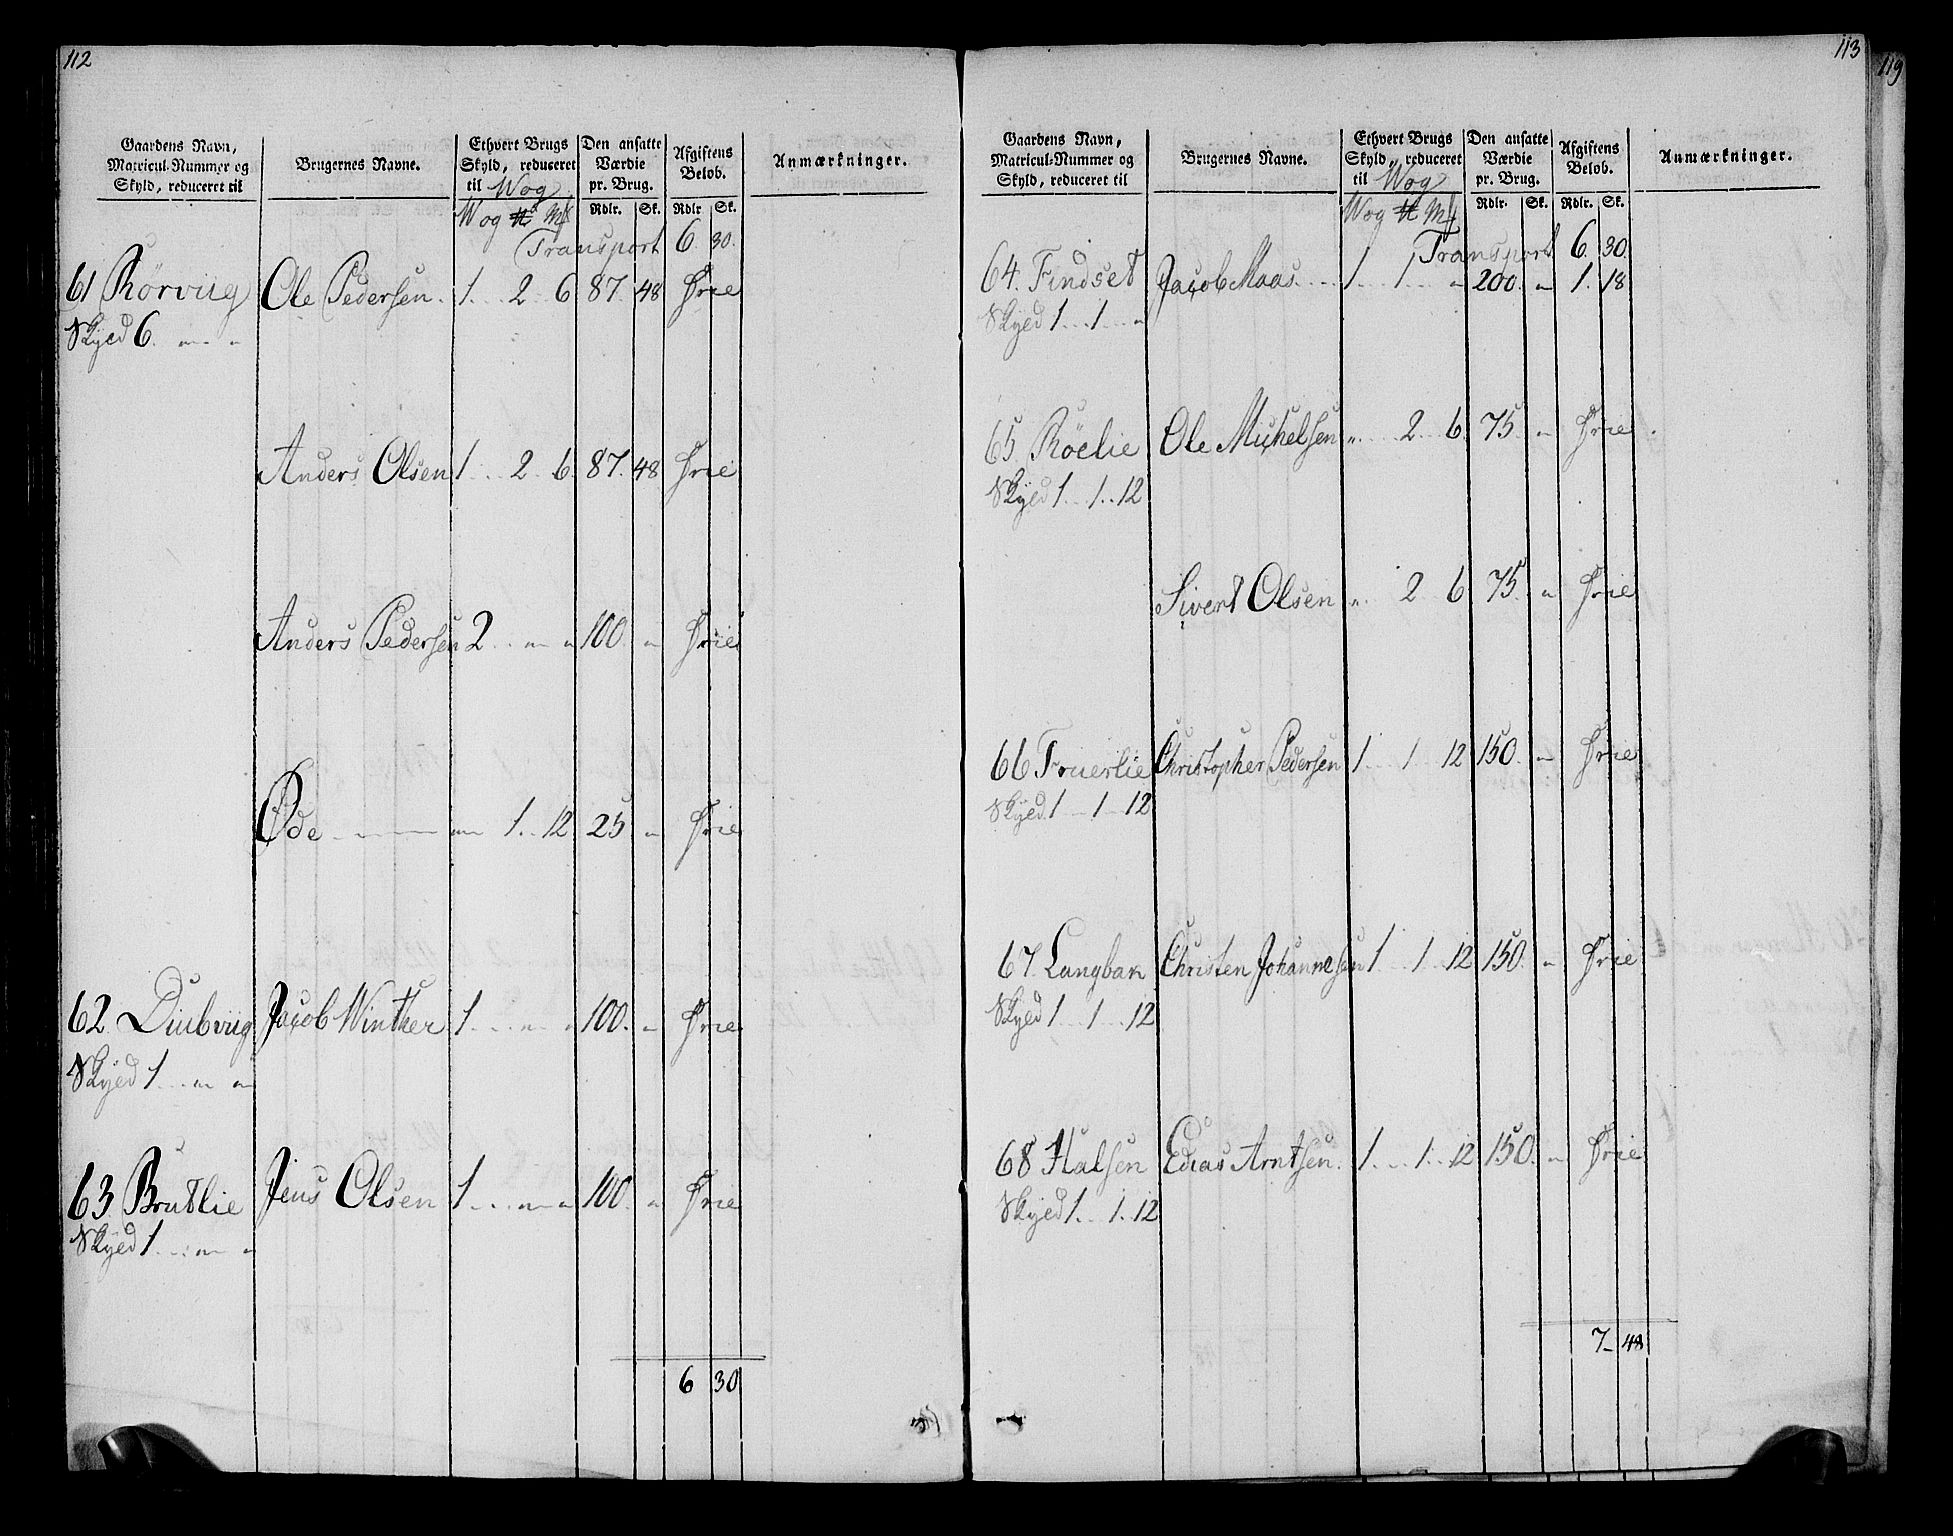 112
Gaardens Navn, Matricul-Nummer og Skyld, reduceret til | Brugernes Navne. | Ethvert Brugs Skyld, reduceret til Wog | Den ansatte Værdie pr. Brug. | Afgiftens Beløb. | Anmærkninger.
Wog ℔ Mk | Rdlr. | Sk. | Rdlr | Sk.
Transport 6. 30.
61 Rörviig Ole Pedersen. 1. 2 6 87. 48 Frie
Skyld 6. " "
Anders Olsen 1 2 6. 87. 48 Frie
Anders Pedersen 2 " " 100. " Frie
Öde " 1. 12 25 " Frie
62. Diubviig Jacob Winther 1 " " 100. " Frie
Skyld 1 " "
63. Brutlie Jens Olsen 1 " " 100. " Frie
Skyld 1 " "
6 30
113
119
Gaardens Navn, Matricul-Nummer og Skyld, reduceret til | Brugernes Navne. | Ethvert Brugs Skyld, reduceret til Wog | Den ansatte Værdie pr. Brug. | Afgiftens Beløb. | Anmærkninger.
Wog ℔ Mk | Rdlr. | Sk. | Rdlr. | Sk.
Transport 6. 30.
64. Findset Jacob Maas 1 1 " 200. " 1. 18
Skyld 1 1 "
65. Röelie Ole Michelsen " 2 6. 75. " Frie
Skyld 1 1 12
Sivert Olsen " 2 6 75. " Frie
66 Fruerlie Christopher Pedersen 1 1 12 150. " Frie
Skyld 1 1 12
67. Langbak Christen Johannesen 1 1 12 150. " Frie
Skyld 1 1 12
68 Halsen Edias Arntsen. 1 1. 12 150. " Frie
Skyld 1. 1. 12
7 48